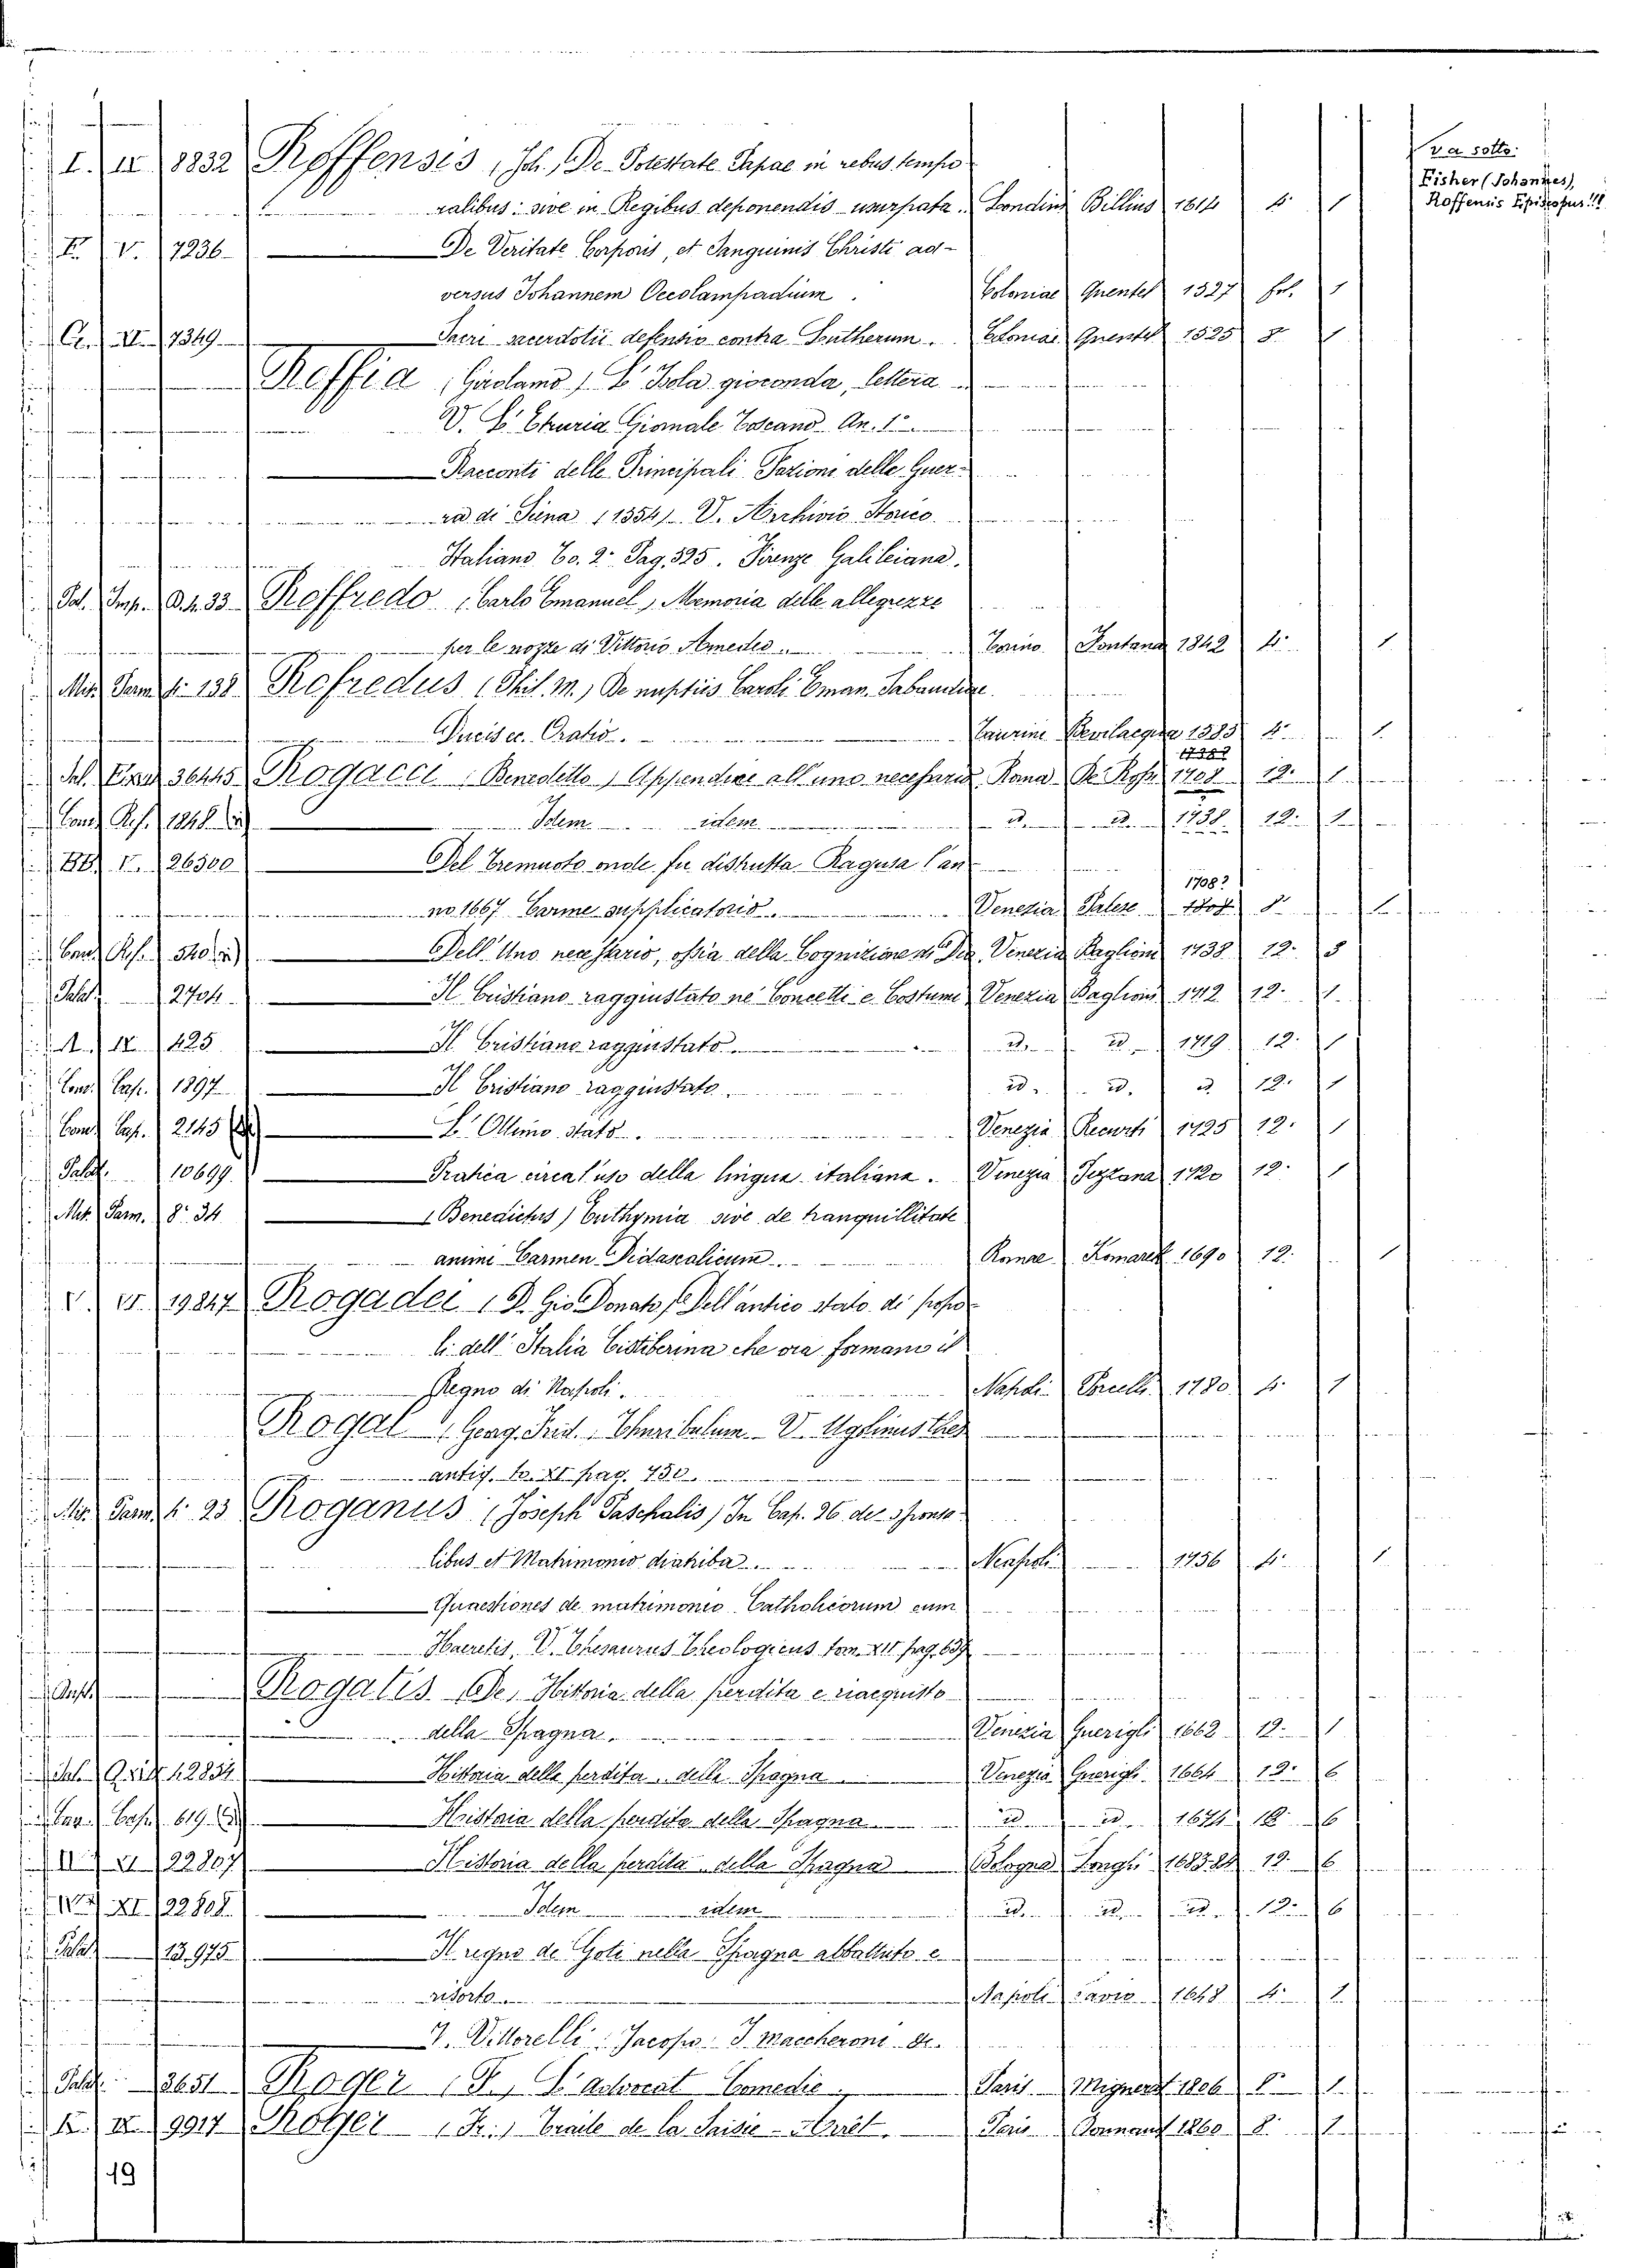 va sotto:
Fisher (Johannes),
Roffensis Episcopus!!!
I. IX 8832 Roffensis, Joh., De Potestate Papae in rebus tempo
ralibus: sive in Regibus deponendis usurpata. Londini Billius 1614 4° 1
V. 7236 De Veritate Corporis, et Sanguinis Christi ad-
versus Johannem Oecolampadium. Coloniae Quentel 1527 fol. 1
7349 Sacri sacerdotii defensio contra Lutherum. Coloniae Quentel 1525 8° 1
Roffia (Girolamo) L'Isola gioconda, lettera
V. L'Etruria Giornale Toscano An. 1°
Racconti delle Principali Fazioni delle Guer-
ra di Siena (1554) V. Archivio Storico
Italiano To. 2° Pag. 525. Firenze Galileiana.
Pal. Imp. 0.4.33 Roffredo (Carlo Emanuel) Memoria delle allegrezze
per le nozze di Vittorio Amedeo Torino Fontana 1842 4° 1
Mis. Pam. 4° 138 Rofredus (Phil. M.) De nuptiis Caroli Eman. Sabaudiae
Ducis ec. Oratio. Taurini Bevilacqua 1585 4° 1
36445 Rogacci (Benedetto) Appendice all'uno necessario Roma De Ross. 1708 12. 1
Cand. Rif. 1848 Idem idem id. id. 1738. 12. 1
26300 Del Tremuoto onde fu distrutta Ragusa l'an
1708?
no 1667 Carme supplicatorio. Venezia Palese 8° 1
Cand. Rif. 540 Dell'Uno necessario, ossia della Cognizione di Dio Venezia Baglioni 1738 12. 3
Palat. 2704 Il Cristiano raggiustato ne' Concetti e Costumi Venezia Baglioni 1712 12. 1
425 Il Cristiano raggiustato id. id. 1719 12. 1
Cand. Cap. 1897 Il Cristiano raggiustato id. id. id. 12. 1
Cand. Cap. 2145 L'Ottimo stato. Venezia Recurti 1725 12. 1
Palat. 10699 Pratica circa l'uso della lingua italiana. Venezia Pezzana 1720 12. 1
Mis. Pam. 8° 34 (Benedictus) Euthymia sive de tranquillitate
animi Carmen Didascalicum. Romae Komarek 1690 12. 1
V. VI 19847 Rogadei (D. Gio. Donato) Dell'antico stato di popo
li dell'Italia Cistiberina che ora formano il
Regno di Napoli. Napoli Porcelli 1780 4° 1
Rogal (Georg. Frid. Thuribulum V. Ugolinus Thes
antiq. to. XI pag. 750.
Mis. Pam. 4° 23 Roganus (Joseph Paschalis) In Cap. 26 de Sponsa
libus et Matrimonio diatriba. Neapoli 1756 4° 1
Quaestiones de matrimonio Catholicorum cum
Haeretis, V. Thesaurus Theologicus tom. XII pag. 637
Rogatis (De) Historia della perdita e riacquisto
della Spagna. Venezia Guerigli 1662 12. 1
42834 Historia delle perdita della Spagna Venezia Guerigli 1664 12. 6
Cap. 619 Historia della perdita della Spagna id. id. 1674 12. 6
II XI 22807 Historia della perdita della Spagna Bologna Longhi 1683.84 12. 6
XI 22808 Idem idem id. id. id. 12. 6
Palat. 13,975 Il regno de Goti nella Spagna abbattuto e
risorto Napoli Cavio 1648 4. 1
V. Vittorelli: Jacopo: I maccheroni ec.
Palat. 13651 Roger (F.) L'Advocat Comedie Paris Migneret 1806 8° 1
9917 Roger (Fr.) Traité de la Saisie-Arrêt. Paris Tonnant 1860 8. 1
19